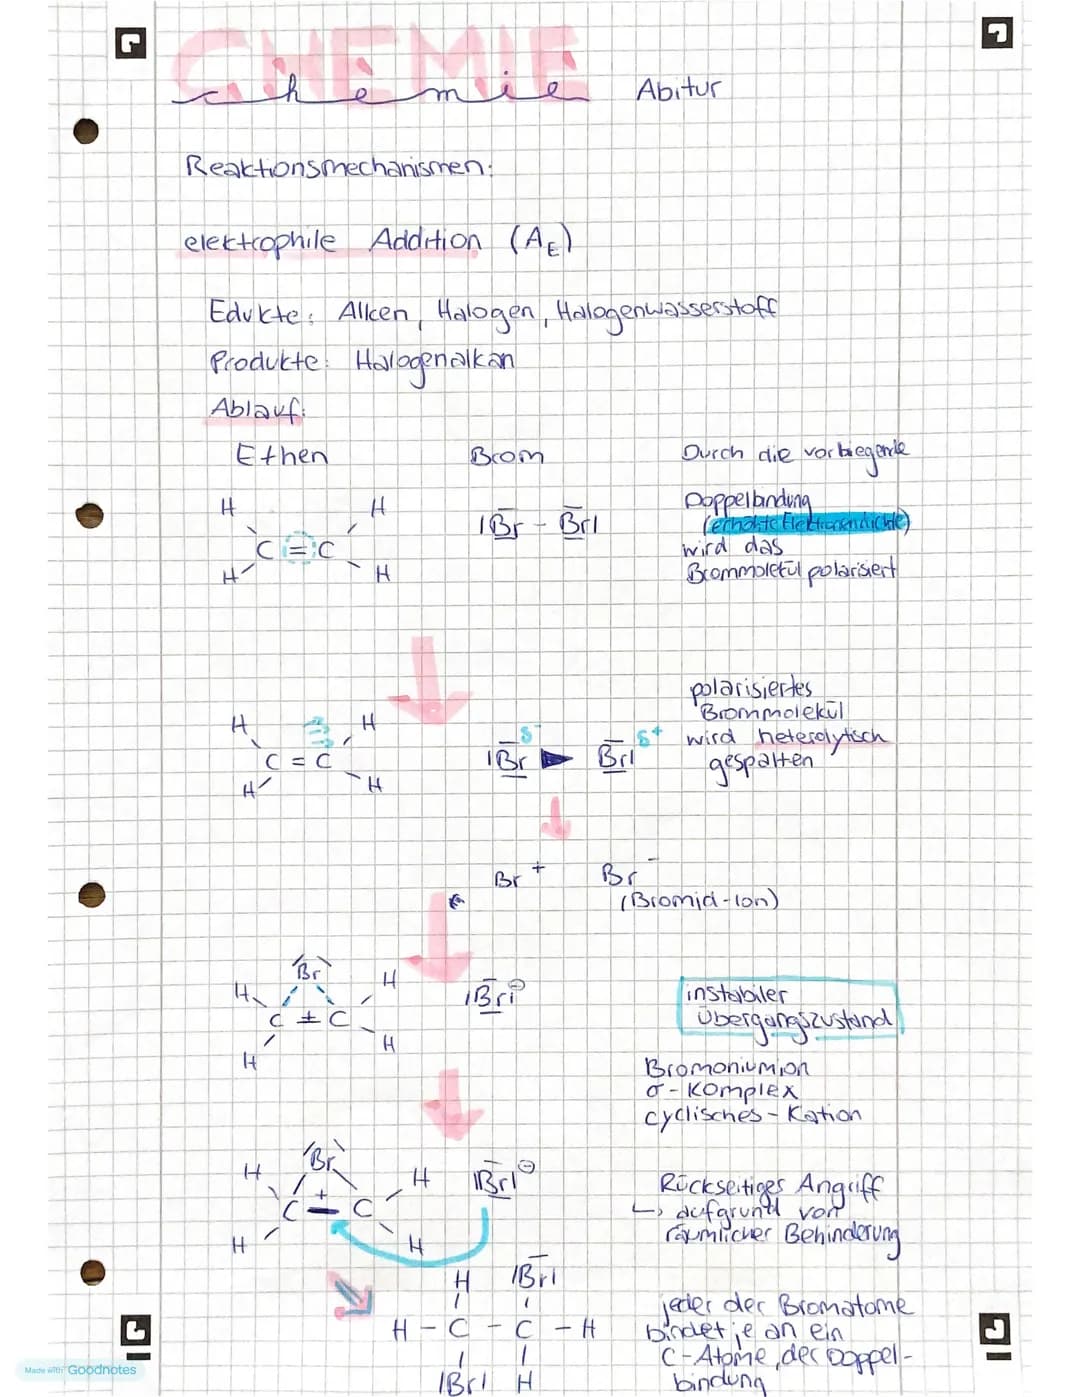 CHEMIE
chemie Abitur
Reaktionsmechanismen:
elektrophile Addition (AE)
Edukte: Alken, Halogen, Halogenwasserstoff
Produkte: Halogenalkan
Ablauf:
Ethen Brom Durch die vorliegende
Doppelbindung
(erhöhte Elektronendichte)
wird das
Brommolekül polarisiert
H H
C = C
H H
|Br - Br|
polarisiertes
Brommolekül
wird heterolytisch
gespalten
H H
C = C
H H
δ- δ+
|Br Br|
Br + Br -
(Bromid-Ion)
Br
H H
C + C
H H
|Br| ⊖
instabiler
Übergangszustand
Bromoniumion
σ-Komplex
cyclisches-Kation
Br
H H |Br| ⊖
C + C
H H
Rückseitiges Angriff
↳ aufgrund von
räumlicher Behinderung
H |Br|
H - C - C - H
|Br| H
jeder der Bromatome
bindet je an ein
C-Atome, der Doppel-
bindung
Made with Goodnotes